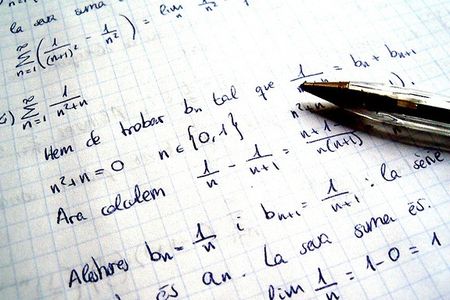 la seva suma = lim 1/n²
∞ ∑ n=1 (1/(n+1)² - 1/n²) =
∞ ∑ n=1 1/(n²+n)
Hem de trobar bn tal que 1/ = bn + bn+1
n²+n = 0 n ∈ {0,1}
Ara calculem 1/n - 1/(n+1) = n+1 / n(n+1)
Aleshores bn = 1/n i bn+1 = 1/(n+1) : la sèrie
és an. La seva suma és:
lim 1/n = 1-0 = 1